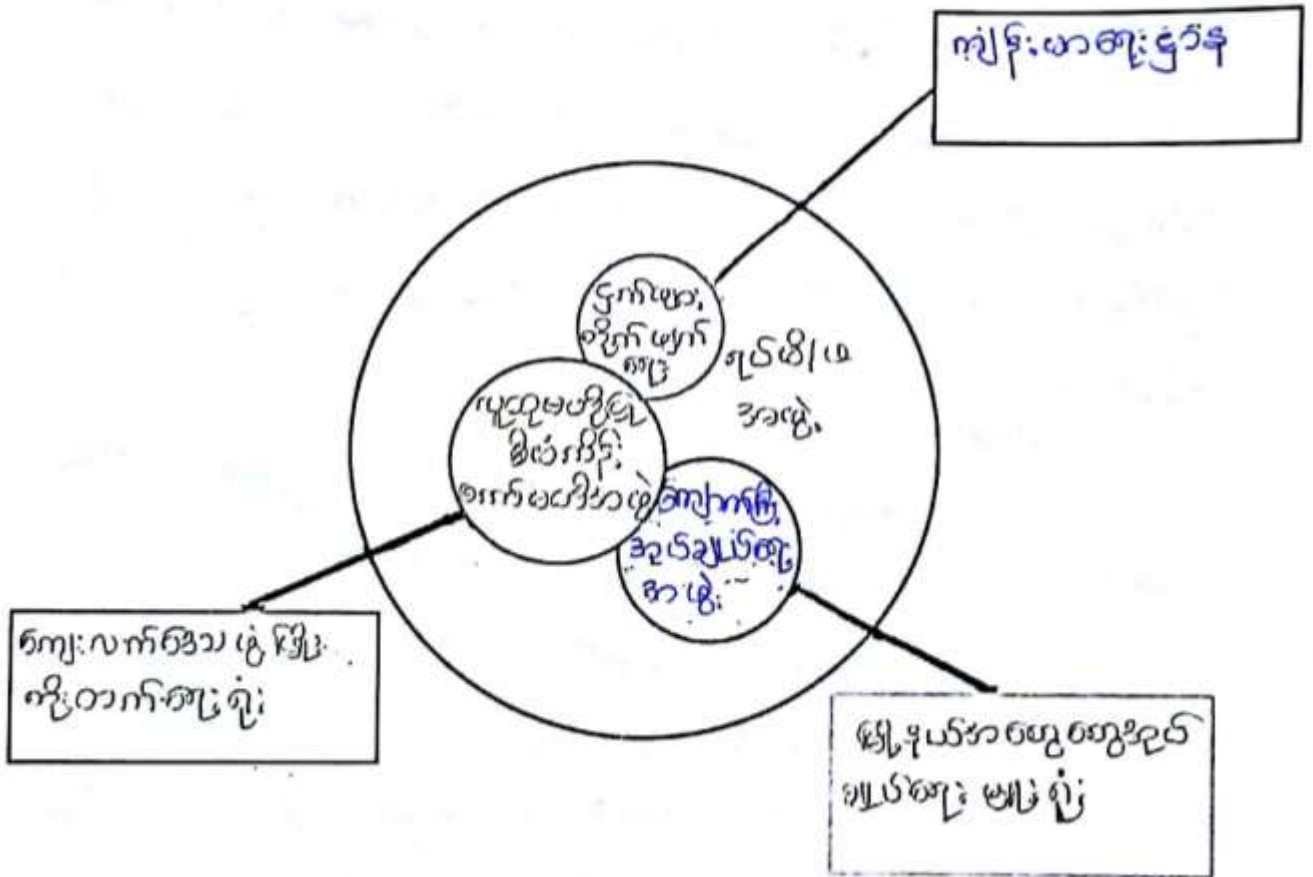 ကျန်းမာရေးဌာန
ငှက်ဖျား
တိုက်ဖျက်
ရေး
ရပ်မိ/ဖ
အဖွဲ့
လူထုမဟိုပြု
စီမံကိန်း
ကော်မတီအဖွဲ့
ကျောက်ကြီး
အုပ်ချုပ်ရေး
အဖွဲ့
ကျေးလက်ဒေသ ဖွံ့ဖြိုး
တိုးတက်ရေးရုံး
မြို့နယ်အထွေထွေအုပ်
ချုပ်ရေး မှူးရုံး